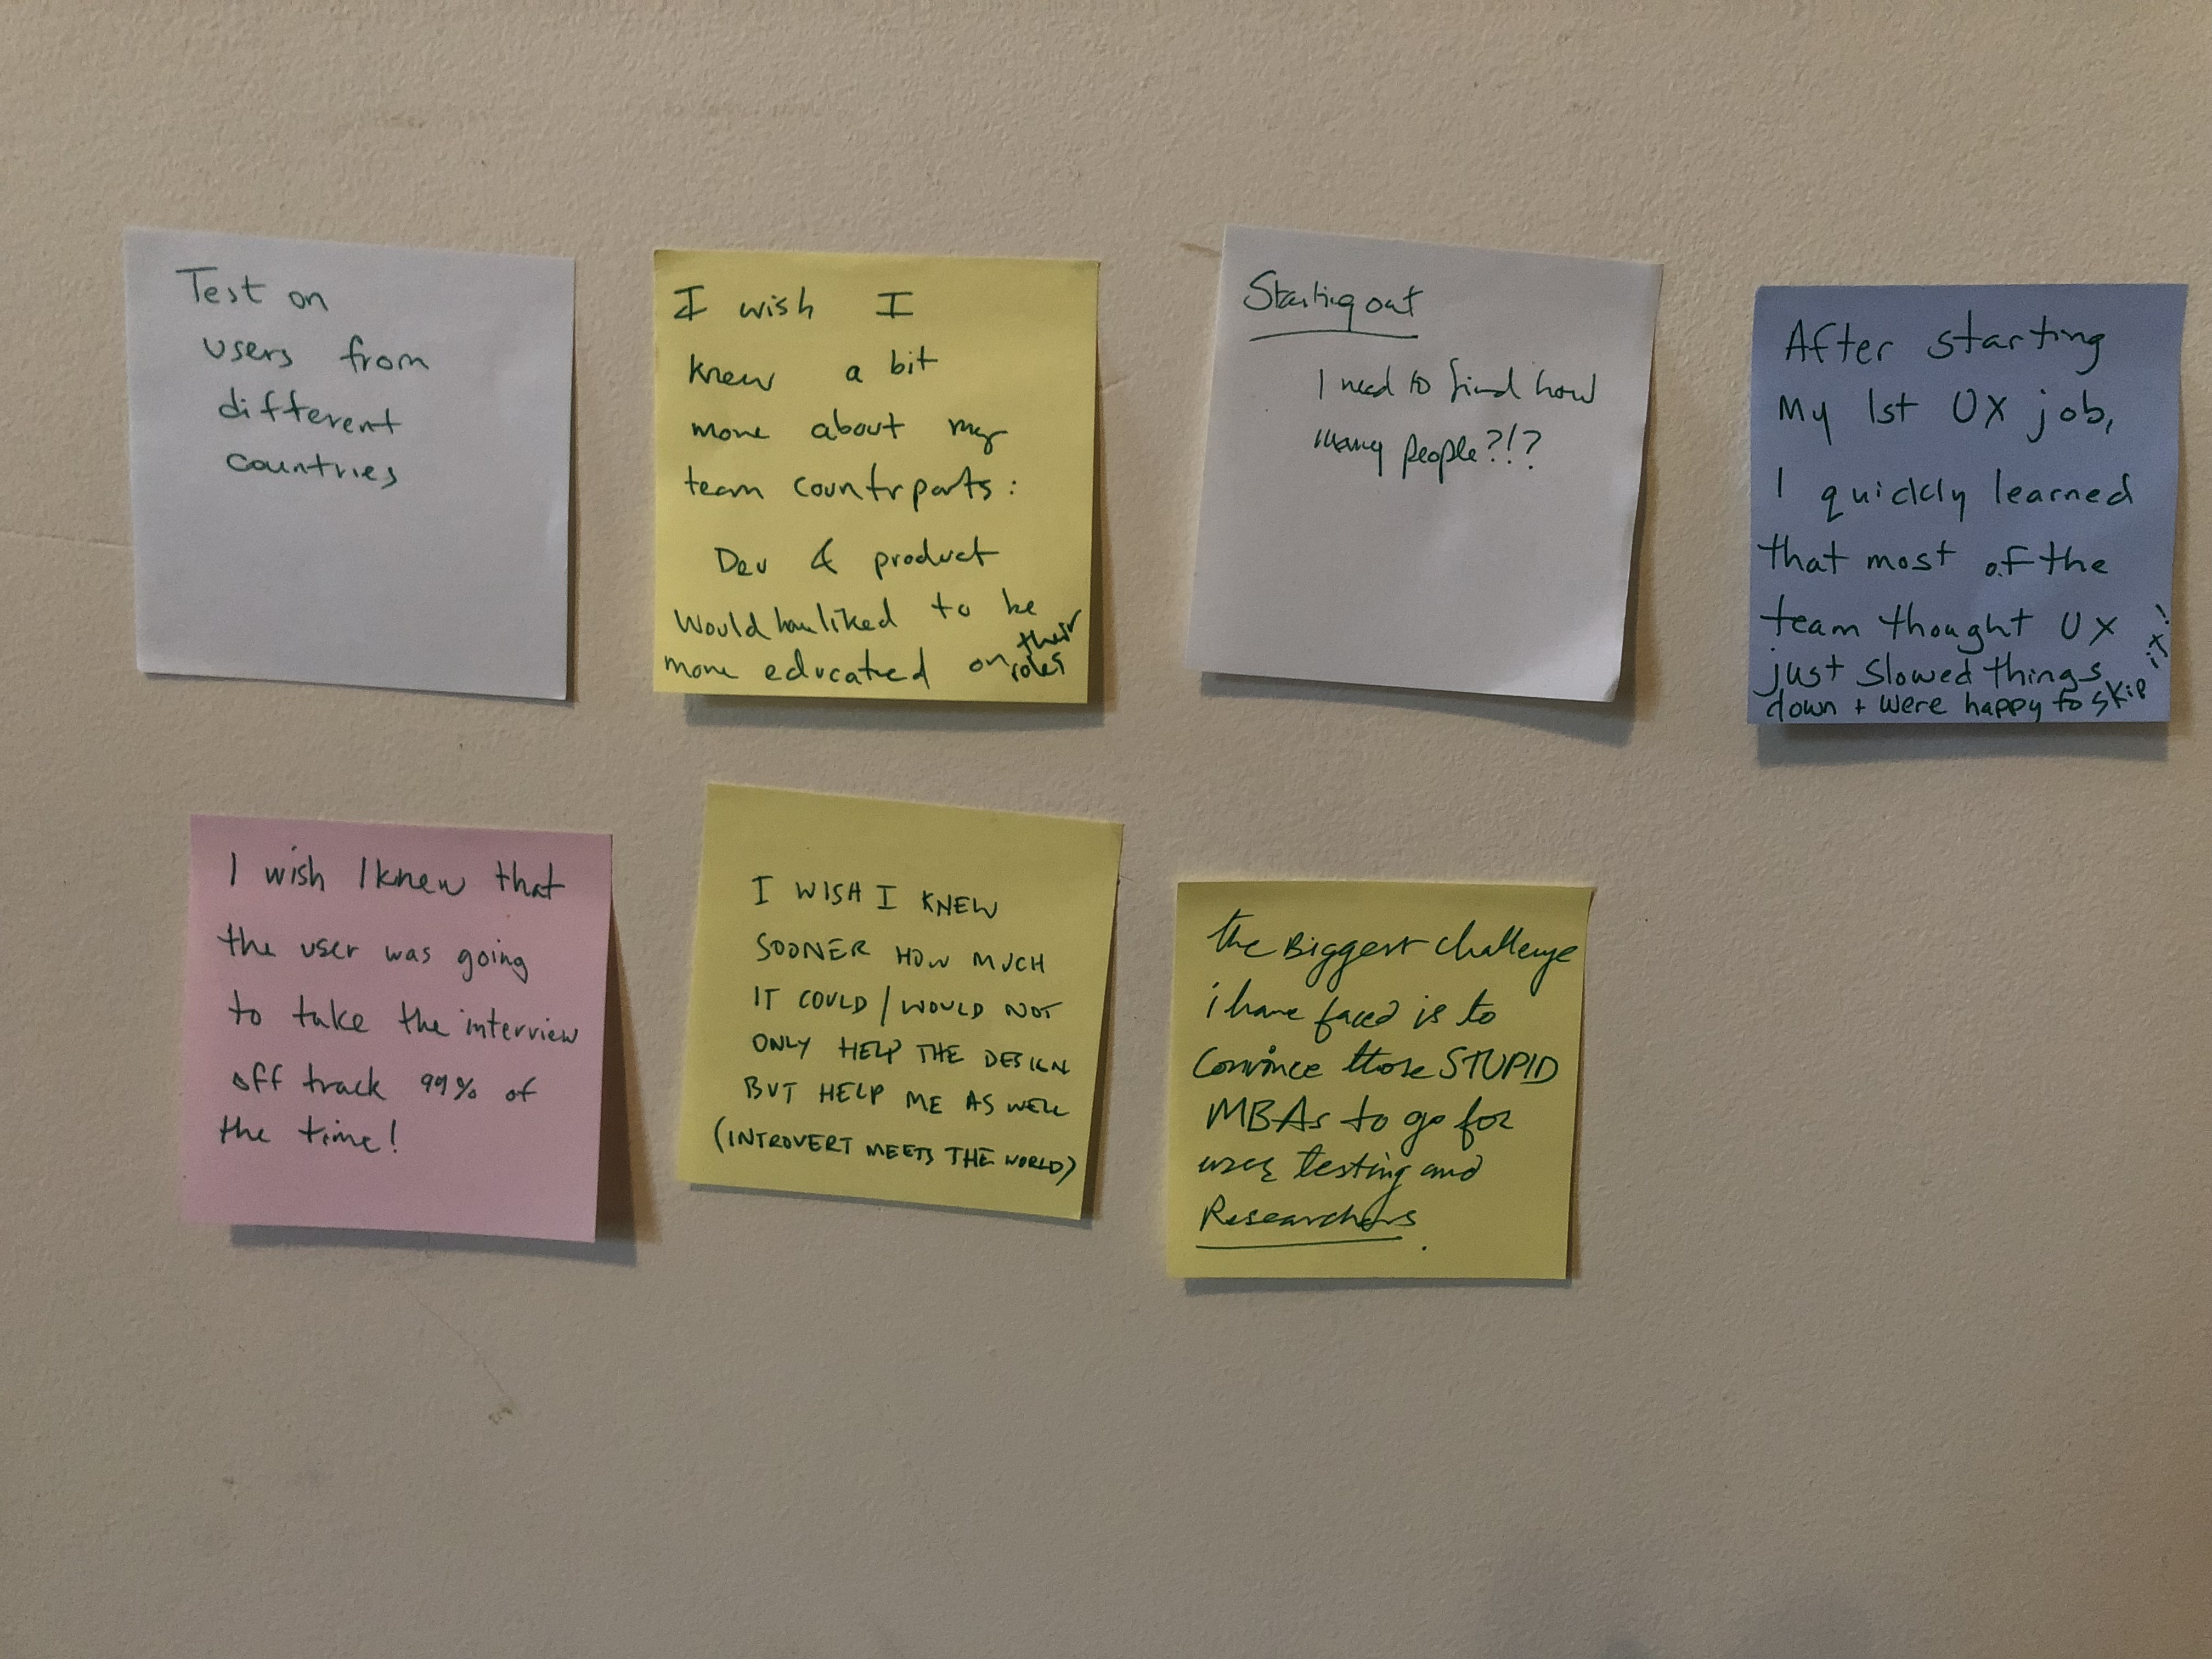 Test on
users from
different
countries
I wish I
knew a bit
more about my
team countrparts:
Dev & product
Would have liked to be
more educated on their roles
Starting out
I need to find how
many people?!?
After starting
My 1st UX job,
I quickly learned
that most of the
team thought UX
just slowed things
down + were happy to skip it!
I wish I knew that
the user was going
to take the interview
off track 99% of
the time!
I WISH I KNEW
SOONER HOW MUCH
IT COULD / WOULD NOT
ONLY HELP THE DESIGN
BUT HELP ME AS WELL
(INTROVERT MEETS THE WORLD)
the Biggest challenge
i have faced is to
Convince those STUPID
MBAs to go for
user testing and
Researchers.